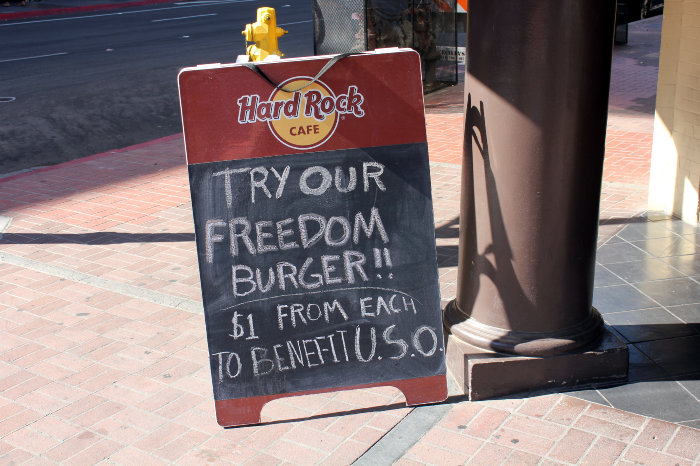 Hard Rock
CAFE
TRY OUR
FREEDOM
BURGER!!
$1 FROM EACH
TO BENEFIT U.S.O.